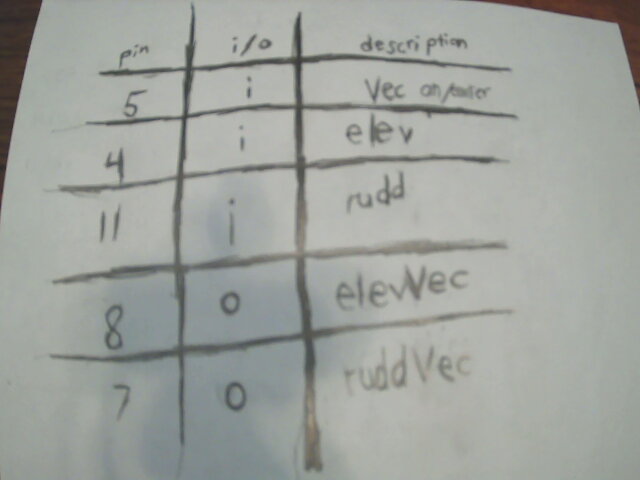 pin i/o description
5 i Vec on/
4 i elev
11 i rudd
8 o elevVec
7 o ruddVec